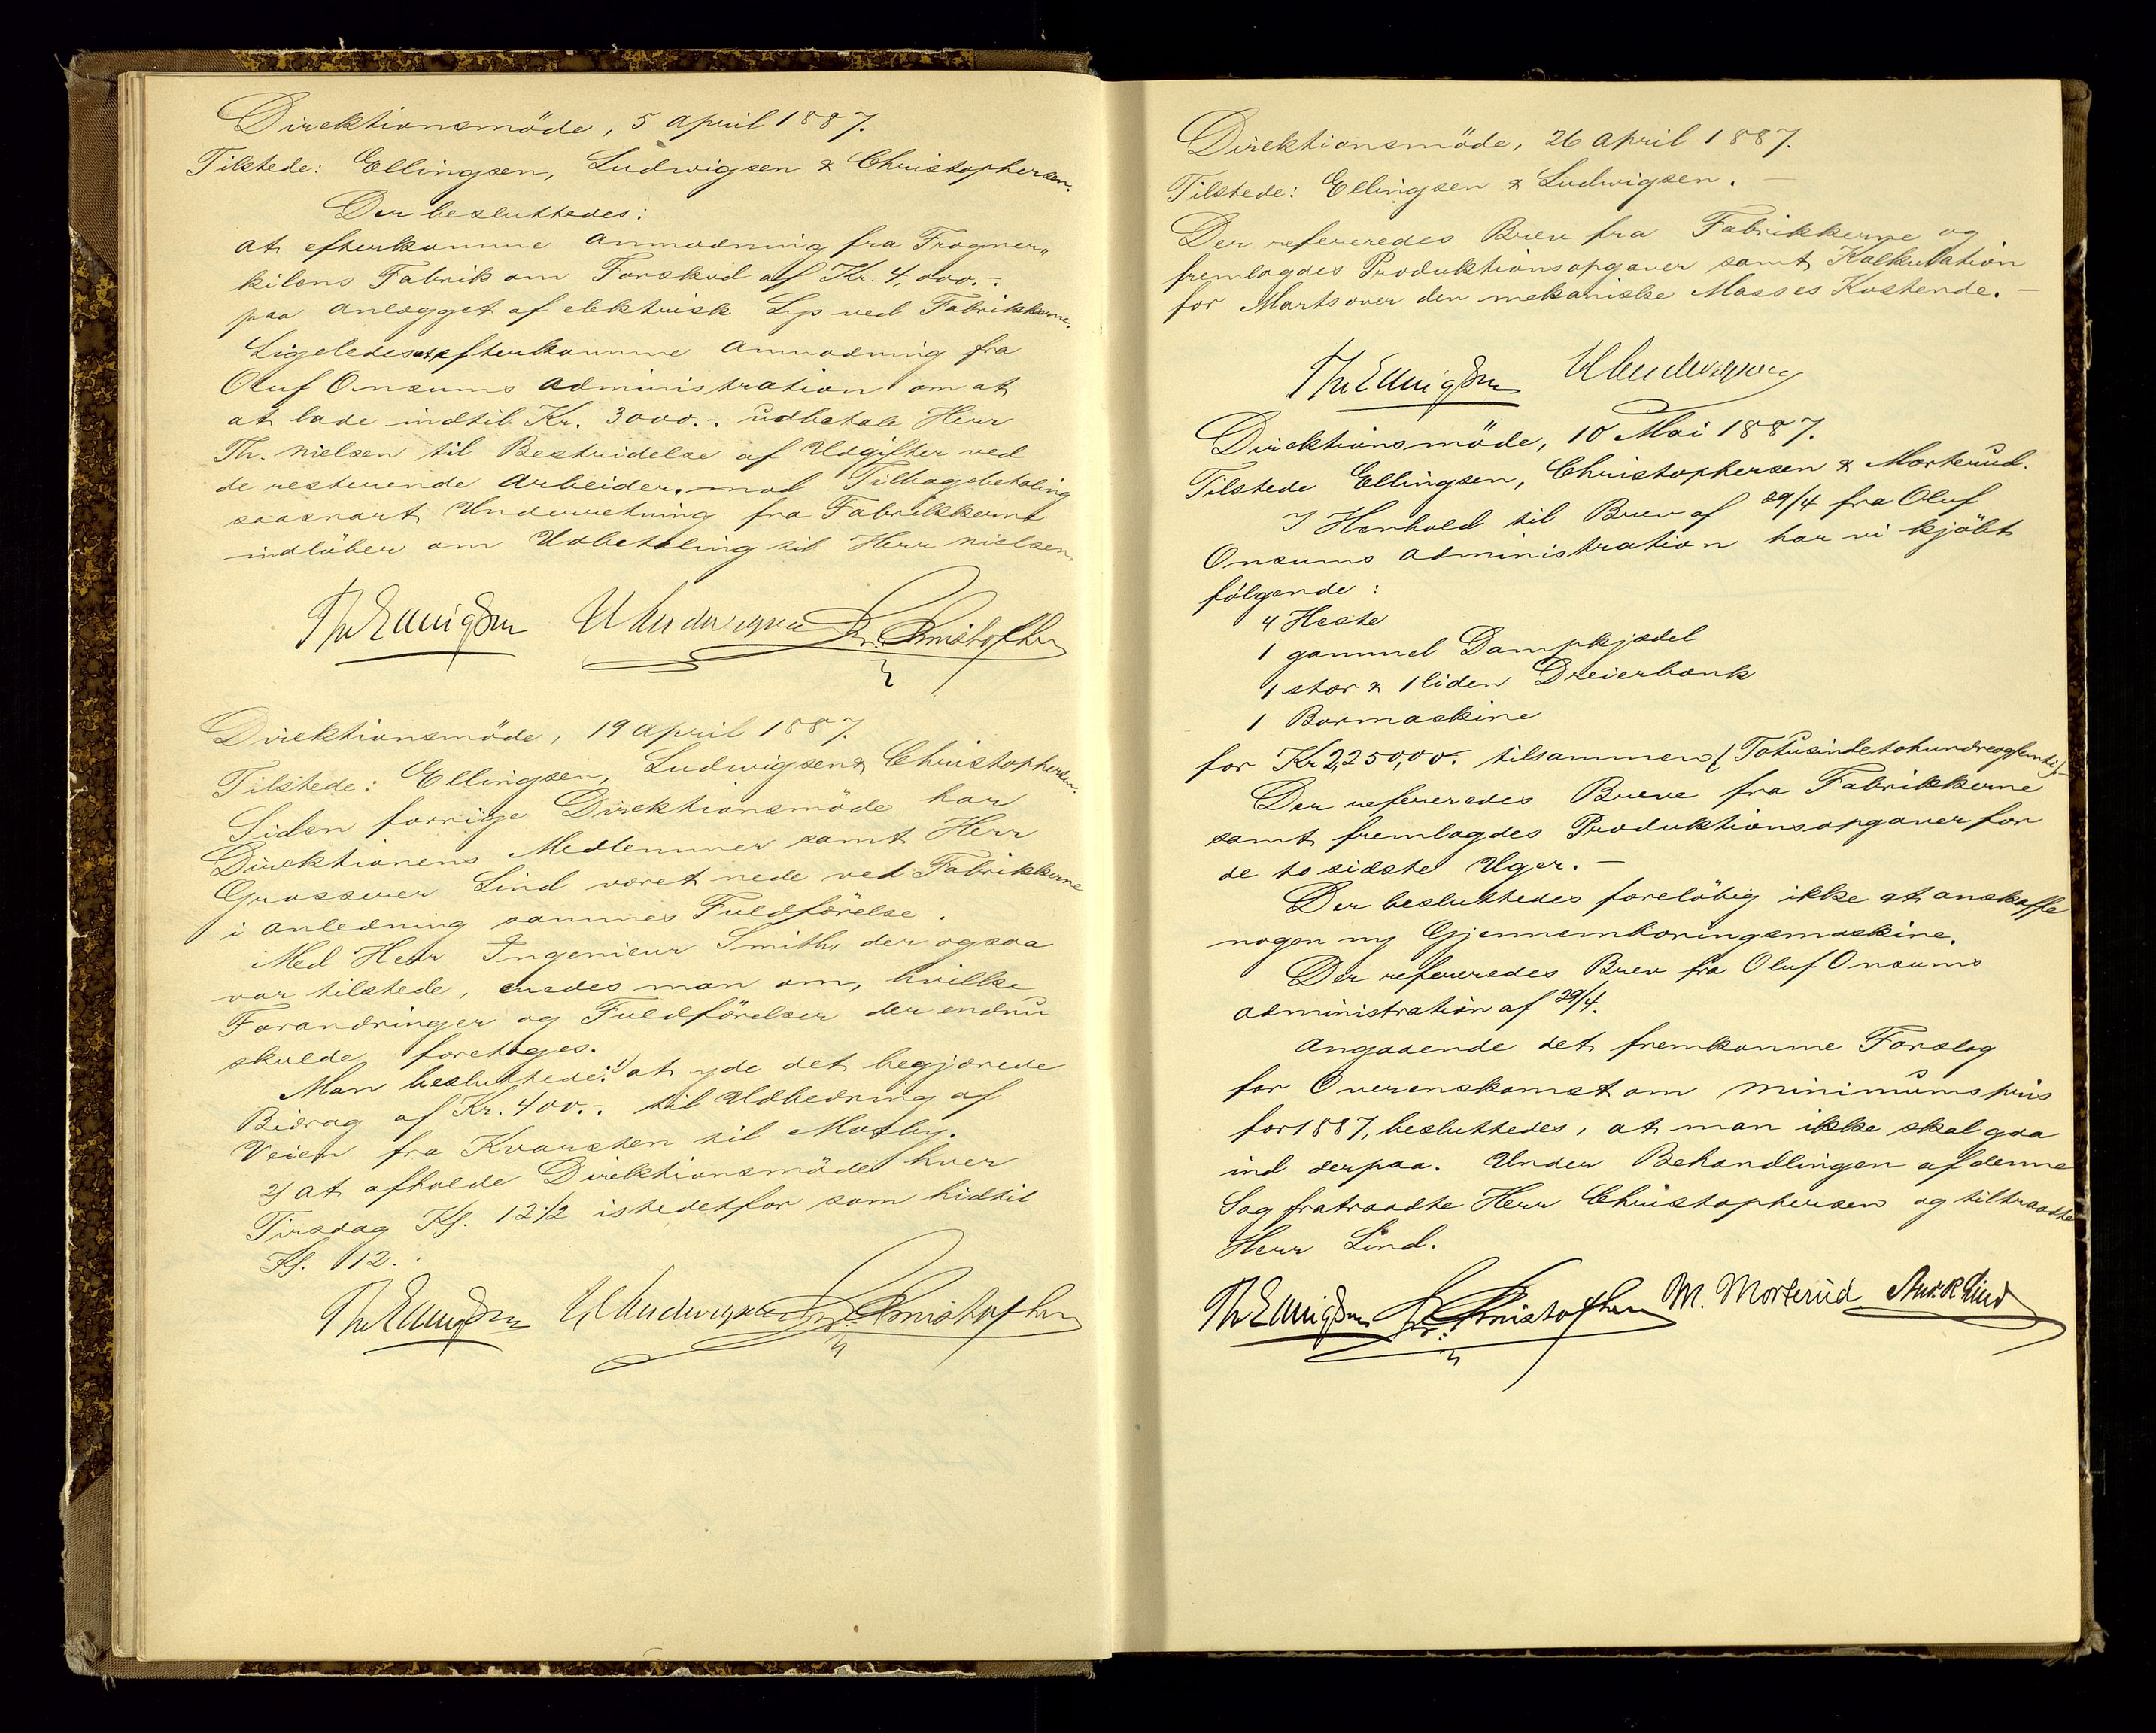 Direktionsmöde, 5 April 1887.
Tilstede: Ellingsen, Ludwigsen & Christophersen.
Der besluttedes:
at efterkomme Anmodning fra Frogner„
kilens Fabrik om Forskud af Kr. 4,000.-.
paa Anlægget af elektrisk Lys ved Fabrikkerne.
Ligeledes at efterkomme Anmodning fra
Oluf Onsums Administration om at
at lade indtil Kr. 3000.-. udbetale Herr
Th. Nielsen til Bestridelse af Udgifter ved
de resterende Arbeider, mod Tilbagebetaling
saasnart Underretning fra Fabrikkerne
indlöber om Udbetaling til Herr Nielsen.
Th Ellingsen Ludwigsen Chr. Christophersen
Direktionsmöde, 19 April 1887.
Tilstede: Ellingsen, Ludwigsen & Christophersen.
Siden forrige Direktionsmöde har
Direktionens Medlemmer samt Herr
Grosserer Lind været nede ved Fabrikkerne
i Anledning sammes Fuldförelse.
Med Herr Ingenieur Smith, der ogsaa
var tilstede, enedes man om, hvilke
Forandringer og Fuldförelser der endnu
skulde foretages.
Man besluttede: 1) at yde det begjærede
Bidrag af Kr. 400.-. til Udbedring af
Veien fra Kvarsten til Mosby.
2) at afholde Direktionsmöde hver
Tirsdag Kl. 12½ istedetfor som hidtil
Kl. 12.
Th Ellingsen Ludwigsen Chr. Christophersen
Direktionsmöde, 26 April 1887.
Tilstede: Ellingsen & Ludwigsen. —
Der refereredes Brev fra Fabrikkerne og
fremlagdes Produktionsopgaver samt Kalkulation
for Marts over den mekaniske Masses Kostende. —
Th Ellingsen Ludwigsen
Direktionsmöde, 10 Mai 1887.
Tilstede Ellingsen, Christophersen & Morterud.
I Henhold til Brev af 29/4 fra Oluf
Onsums Administration har vi kjöbt
fölgende:
4 Heste
1 gammel Dampkjedel
1 stor & 1 liden Dreierbænk
1 Bormaskine
for Kr 2,250,00. tilsammen (Totusindetohundredeogfemti).-
Der refereredes Breve fra Fabrikkerne
samt fremlagdes Produktionsopgaver for
de to sidste Uger. —
Der besluttedes forelöbig ikke at anskaffe
nogen ny Gjennemboringsmaskine.
Der refereredes Brev fra Oluf Onsums
Administration af 29/4.
Angaaende det fremkomne Forslag
for Overenskomst om Minimumspris
for 1887, besluttedes, at man ikke skal gaa
ind derpaa. Under Behandlingen af denne
Sag fratraadte Herr Christophersen og tiltraadte
Herr Lind.
Th Ellingsen Chr. Christophersen M. Morterud Lind